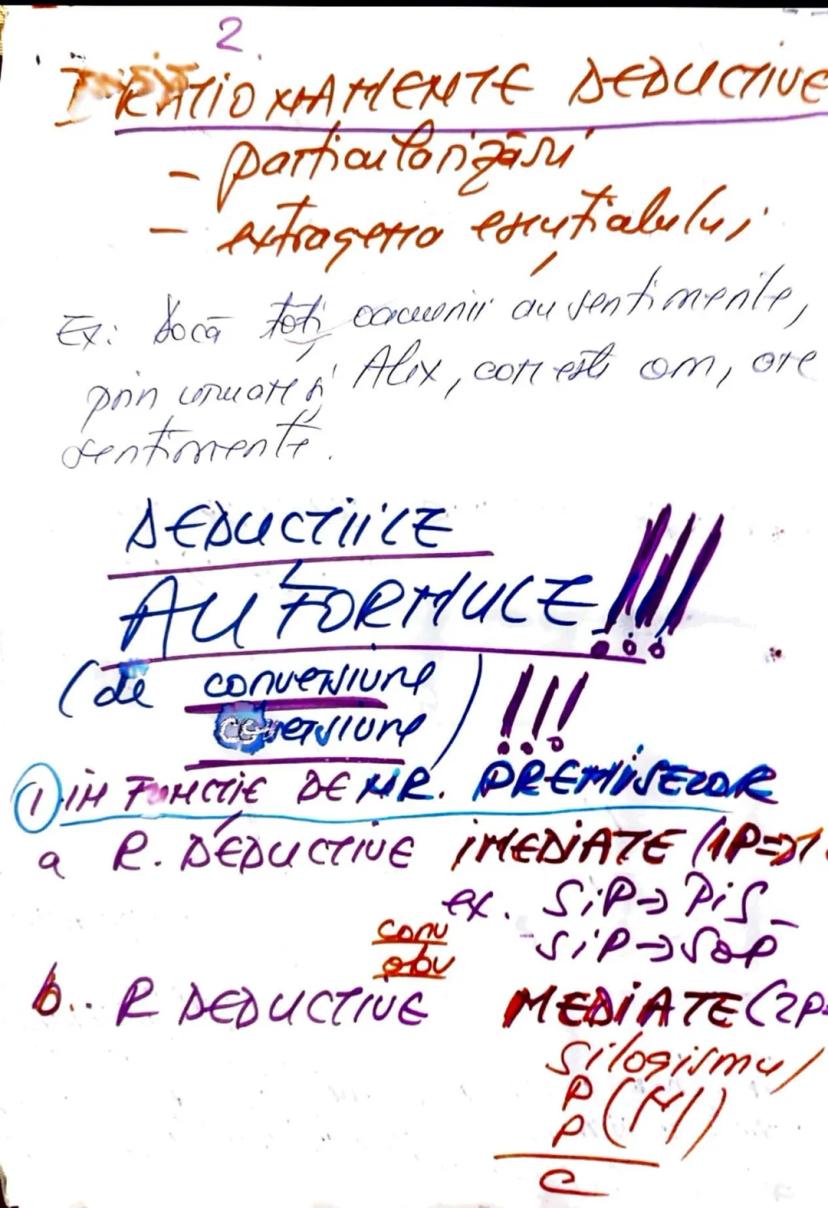 2.
I RAȚIONAMENTE DEDUCTIVE
- particularizări
- extragerea esențialului
Ex: Dacă toți oamenii au sentimente,
prin urmare și Alex, care este om, are
sentimente.
DEDUCȚIILE
AU FORMULE!!!
(de conversiune) !!!
obversiune
① ÎN FUNCȚIE DE NR. PREMISELOR
a R. DEDUCTIVE IMEDIATE (1P=>1
ex. SiP→PiS
conv
obv
SiP→SoP
b.. R DEDUCTIVE MEDIATE (2P=
Silogismul
P
P (M)
C